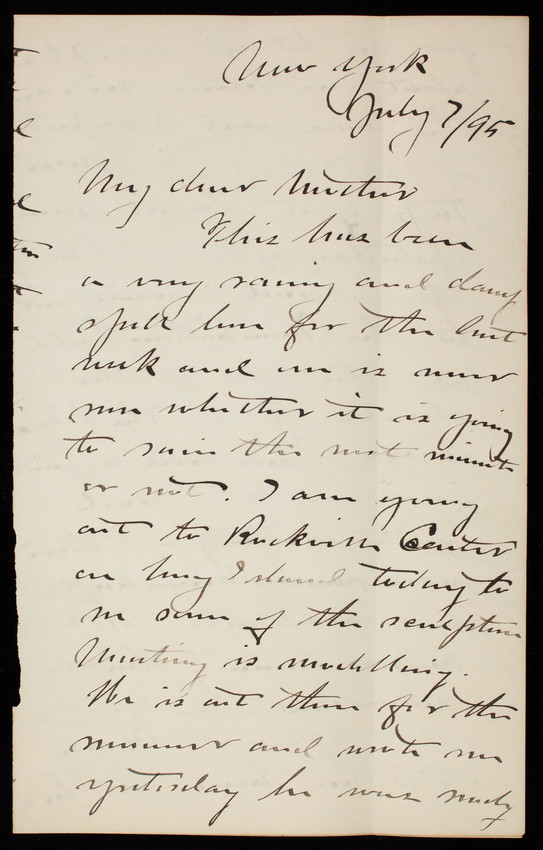 New York
July 7/95
My dear Mother
This has been
a very rainy and damp
spell here for the last
week and one is never
sure whether it is going
to rain the next minute
or not. I am going
out to Rockville Center
on Long Island today to
see some of the sculpture
is modelling.
He is out there for the
summer and wrote me
yesterday he was ready